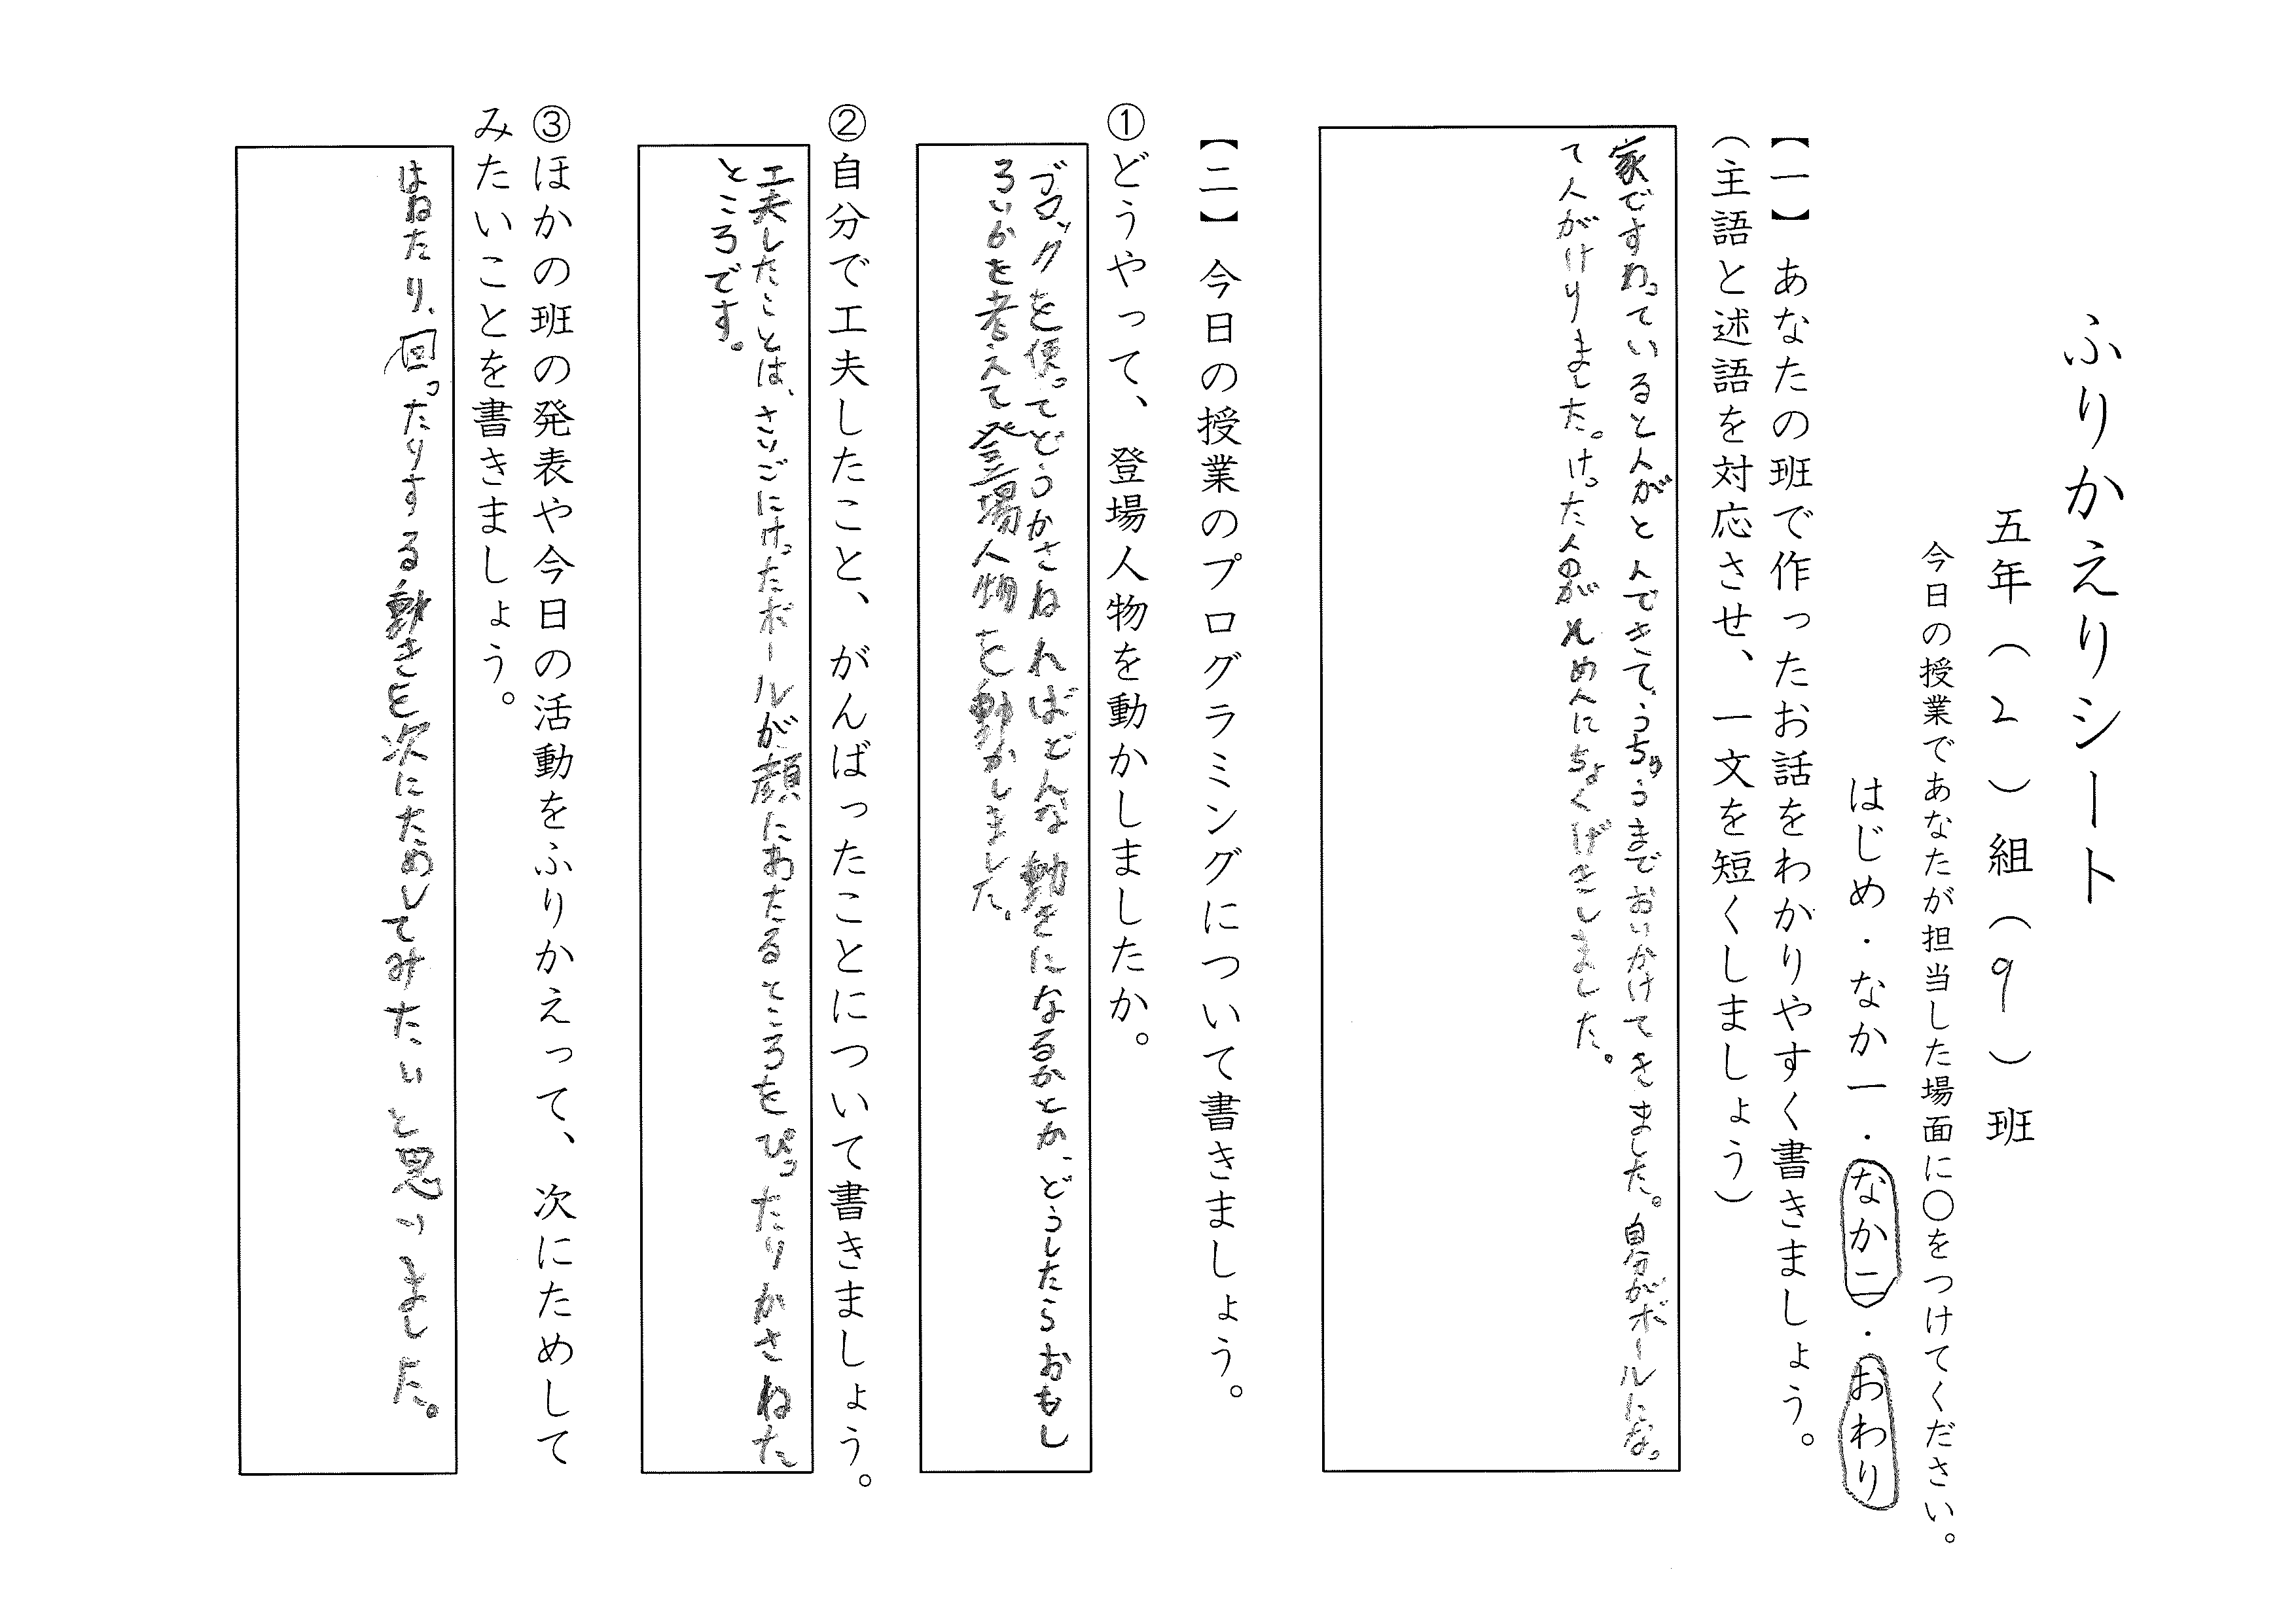 ふりかえりシート
五年（２）組（９）班
今日の授業であなたが担当した場面に〇をつけてください。
はじめ・なか一・なか二・おわり
【一】あなたの班で作ったお話をわかりやすく書きましょう。
（主語と述語を対応させ、一文を短くしましょう）
家ですわっていると人がとんできて、うちゅうまでおいかけてきました。自分がボールになっ
て人がけりました。けった人のがれめんにちょくげきしました。
【二】今日の授業のプログラミングについて書きましょう。
①どうやって、登場人物を動かしましたか。
ブロックを使ってどうかさねればどんな動きになるかとか、どうしたらおもし
ろいかを考えて登場人物を動かしました。
②自分で工夫したこと、がんばったことについて書きましょう。
工夫したことは、さいごにけったボールが顔にあたるところをぴったりかさねた
ところです。
③ほかの班の発表や今日の活動をふりかえって、次にためして
みたいことを書きましょう。
はねたり、回ったりする動きを次にためしてみたいと思いました。